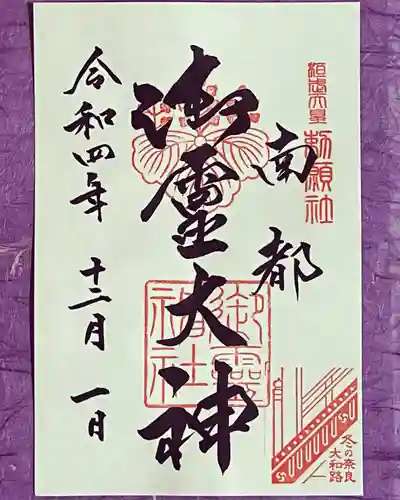 桓武天皇
勅願社
南都
御霊大神
御霊神社
令和四年 十二月 一日
冬の奈良
大和路